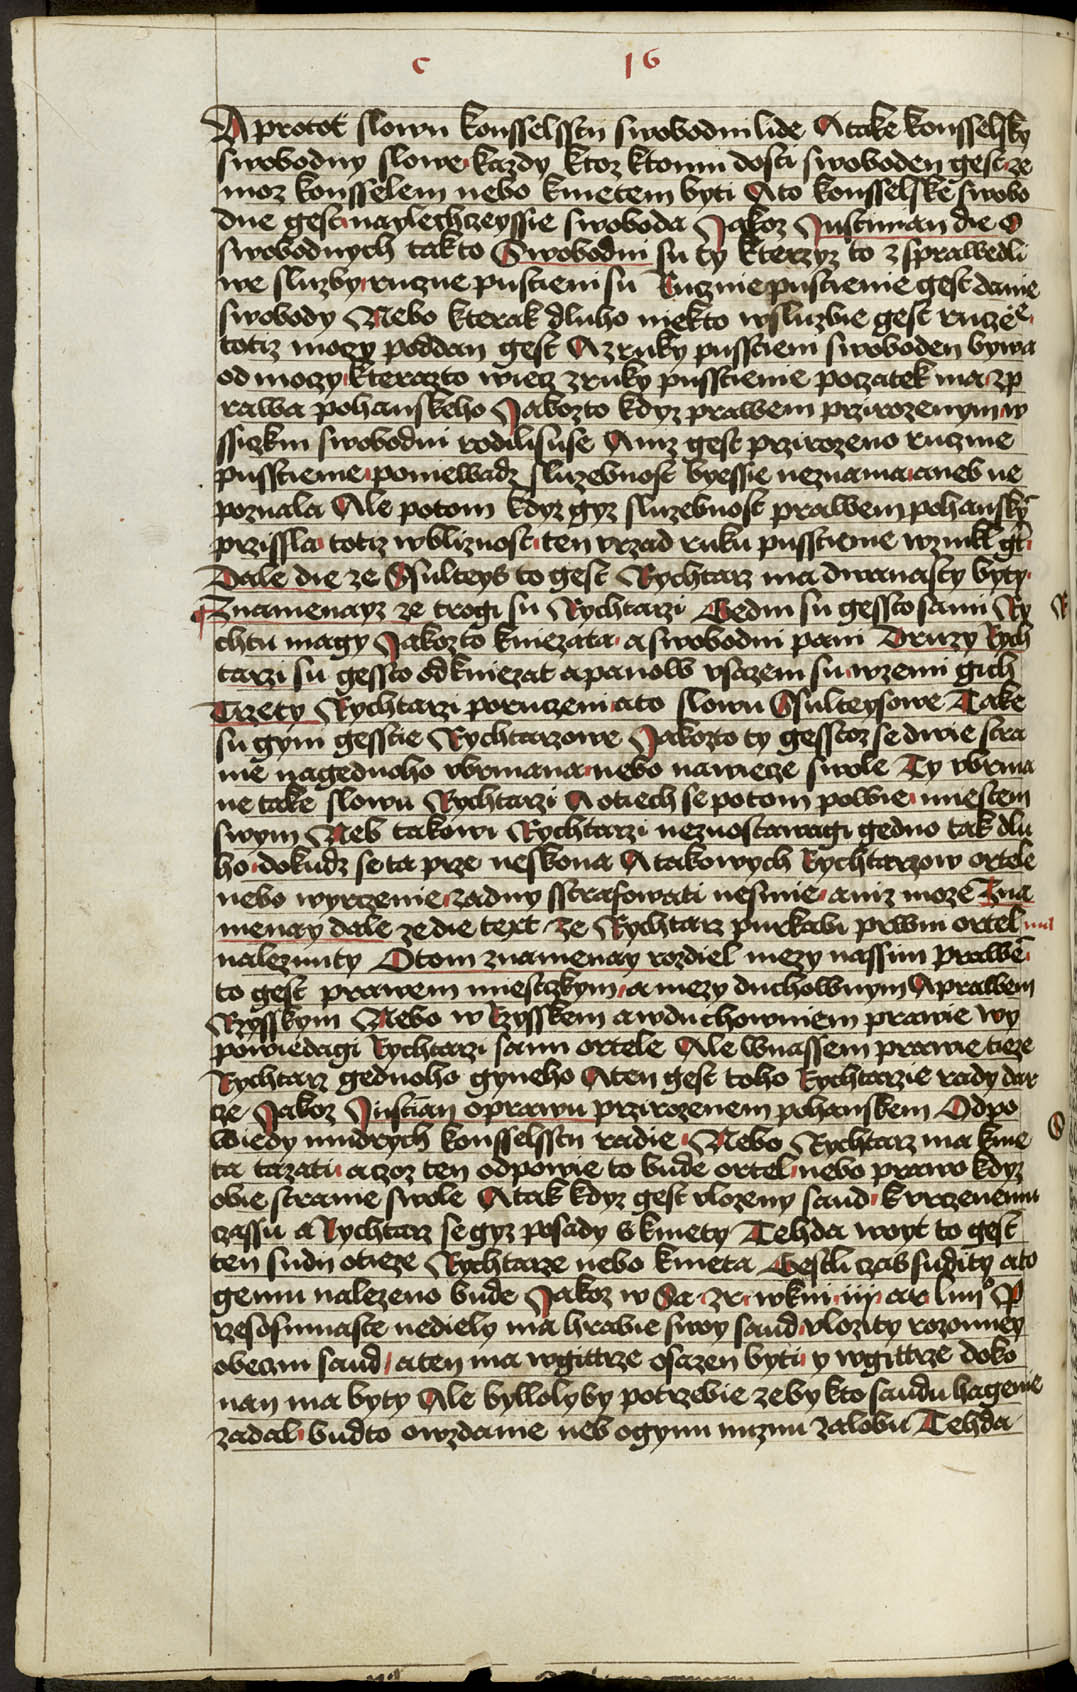 c 16
A protot slowu konsselssti swobodni lide A take konsselsky
swobodny slowe kazdy ktoz ktomu dosti swoboden gest ze
moz konsselem nebo kmetem byti A to konsselske swobo
dne gest naylechczeyssie swoboda Jakoz Justinian die o
swobodnych takto Swobodni su ty kterzyz to z sprawedli
we sluzby ruczne pustieni su Rucznie pustienie gest danie
swobody Nebo kterak dluho niekto w sluzbie gest ruczie
totiz moczy poddan gest A z ruky pusstieni swoboden bywa
od moczy kterazto wiecz z ruky pusstienie poczatek ma z p
rawa pohanskeho Jakozto kdyz prawem przirozenym w
ssiczkni swobodni rodili su se Aniz gest przirozeno rucznie
pusstienie poniewadz sluzebnost byessie neznama aneb ne
poznala Ale potom kdyz gyz sluzebnost prawem pohansky
przissla totiz w bliznost ten vrzad ruku pusstienie wznikl gt
Dale die ze Ssulteys to gest Rychtarz ma dwanasty byty
Znamenayz ze trogi su Rychtarzi Gedni su gessto sami Ry
chtu magy Jakozto kniezata a swobodni pani Druzy Rych
tarzi su gessto od kniezat a panow vsazeni su w zemi gich
Trzety Rychtarzi poruczeni a to slowu Ssulteysowe Take
su gyni gesstie Rychtarzowe Jakozto ty gesstoz se dwie stra
nie na gednoho vbrmana nebo na wiecze swole Ty vbrma
ne take slowu Rychtarzi A o tiech se potom powie miestem
swym Neb takowi Rychtarzi neznostawagi gedno tak dlu
ho dokudz se ta prze neskona A takowych Rychtarzow ortele
nebo wyrczenie zadny sstrafowati nesmie aniz moze Zna
menay dale ze die text ze Rychtarz purkabi prwni ortel ma
nalezunty O tom znamenay rozdiel mezy nassim prawe
to gest prawem miestczkym a mezy duchownym A prawem
Rzysskym Nebo w Rzysskem a w duchowniem prawie wy
powiedagi Rychtarzi sami ortele Ale w nassem prawie tieze
Rychtarz gednoho gyneho A ten gest toho Rychtarzie rady dar
cze Jakoz Justian o prawu przirozenem pohanskem Odpo
wiedy mudrych konsselssti radie Nebo Rychtarz ma kme
ta tazati a czoz ten odpowie to bude ortel nebo prawo kdyz
obie stranie swole A tak kdyz gest vlozeny saud k vrczenemu
czassu a Rychtarz se gyz posady s kmety Tehda woyt to gest
ten sudy otieze Rychtarze nebo kmeta Gestli czas sudity a to
gemu nalezeno bude Jakoz w Sa zr w kni iij ar lxi P
rzes osmnaste nediely ma hrabie swoy saud vlozity rozomney
obeczni saud a ten ma w gittrze osazen byti y w gittrze doko
nan ma byty Ale byllolyby potrzebie ze by kto saudu hagenie
zadal budto o wzdanie neb o gynu niznu zalobu Tehda